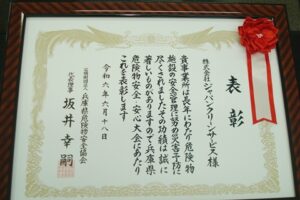 表彰
株式会社ジャパンクリーンサービス様
貴事業所は長年にわたり危険物
施設の安全管理に努め災害予防に
尽くされましたその功績は誠に
著しいものがありますので兵庫県
危険物安全・安心大会にあたり
これを表彰します
令和六年六月十八日
兵庫県危険物安全協会
代表理事 坂井幸嗣